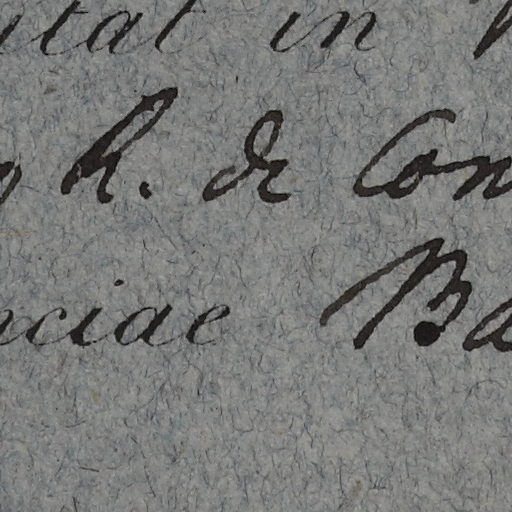 itat in
h. de Con
nciae Ba